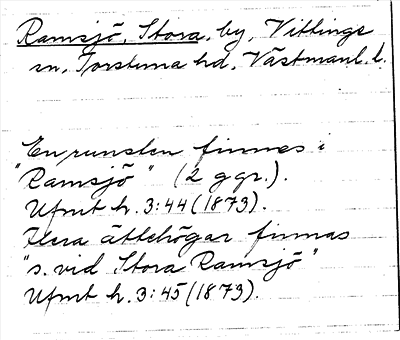 Ramsjö, Stora, by, Vittinge
sn, Torstuna hd, Västmanl. l.
En runsten finnes i
"Ramsjö" (2 ggr.).
Ufmt h. 3:44 (1873).
Flera ättehögar finnas
"s. vid Stora Ramsjö"
Ufmt h. 3:45 (1873).